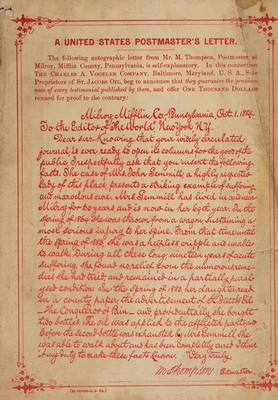 A UNITED STATES POSTMASTER'S LETTER.
The following autographic letter from Mr. M. Thompson, Postmaster, at
Milroy, Mifflin County, Pennsylvania, is self-explanatory. In this connection
THE CHARLES A. VOGELER COMPANY, Baltimore, Maryland, U. S. A., Sole
Proprietors of ST. JACOBS OIL, beg to announce that they guarantee the genuineness
of every testimonial published by them, and offer ONE THOUSAND DOLLARS
reward for proof to the contrary:
Milroy Mifflin Co., Pennsylvania, Oct. 1. 1884.
To the Editor of The World New York N.Y.
Dear Sir: Knowing that your widely circulated
journal is ever ready to open its columns for the good of the
public I respectfully ask that you insert the following
facts. The case of Mrs John Gemmill, a highly respected
lady of this place, presents a striking example of suffering
and marvelous cure. Mrs Gemmill has lived in or near
Milroy for 60 years and is now in her 69th year. In the
spring of 1864 she was thrown from a wagon sustaining a
most serious injury to her spine. From that time until
the spring of 1883 she was a helpless cripple and unable
to walk. During all these long nineteen years of acute
suffering, she found no relief from the numerous remedies
she had tried and remained in a partially paralyzed
condition. In the Spring of 1883 her daughter read
in a county paper the advertisement of St Jacobs Oil
The Conqueror of Pain and providentially she bought
two bottles. The oil was applied to the afflicted parts and
before the second bottle was exhausted Mrs Gemmill she
was able to walk about and has been completely cured. I think
it my duty to make these facts known. Very truly,
M Thompson Postmaster